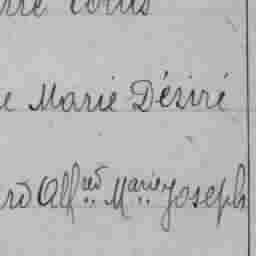 e Marie Désiré
rd Alfred Marie Joseph